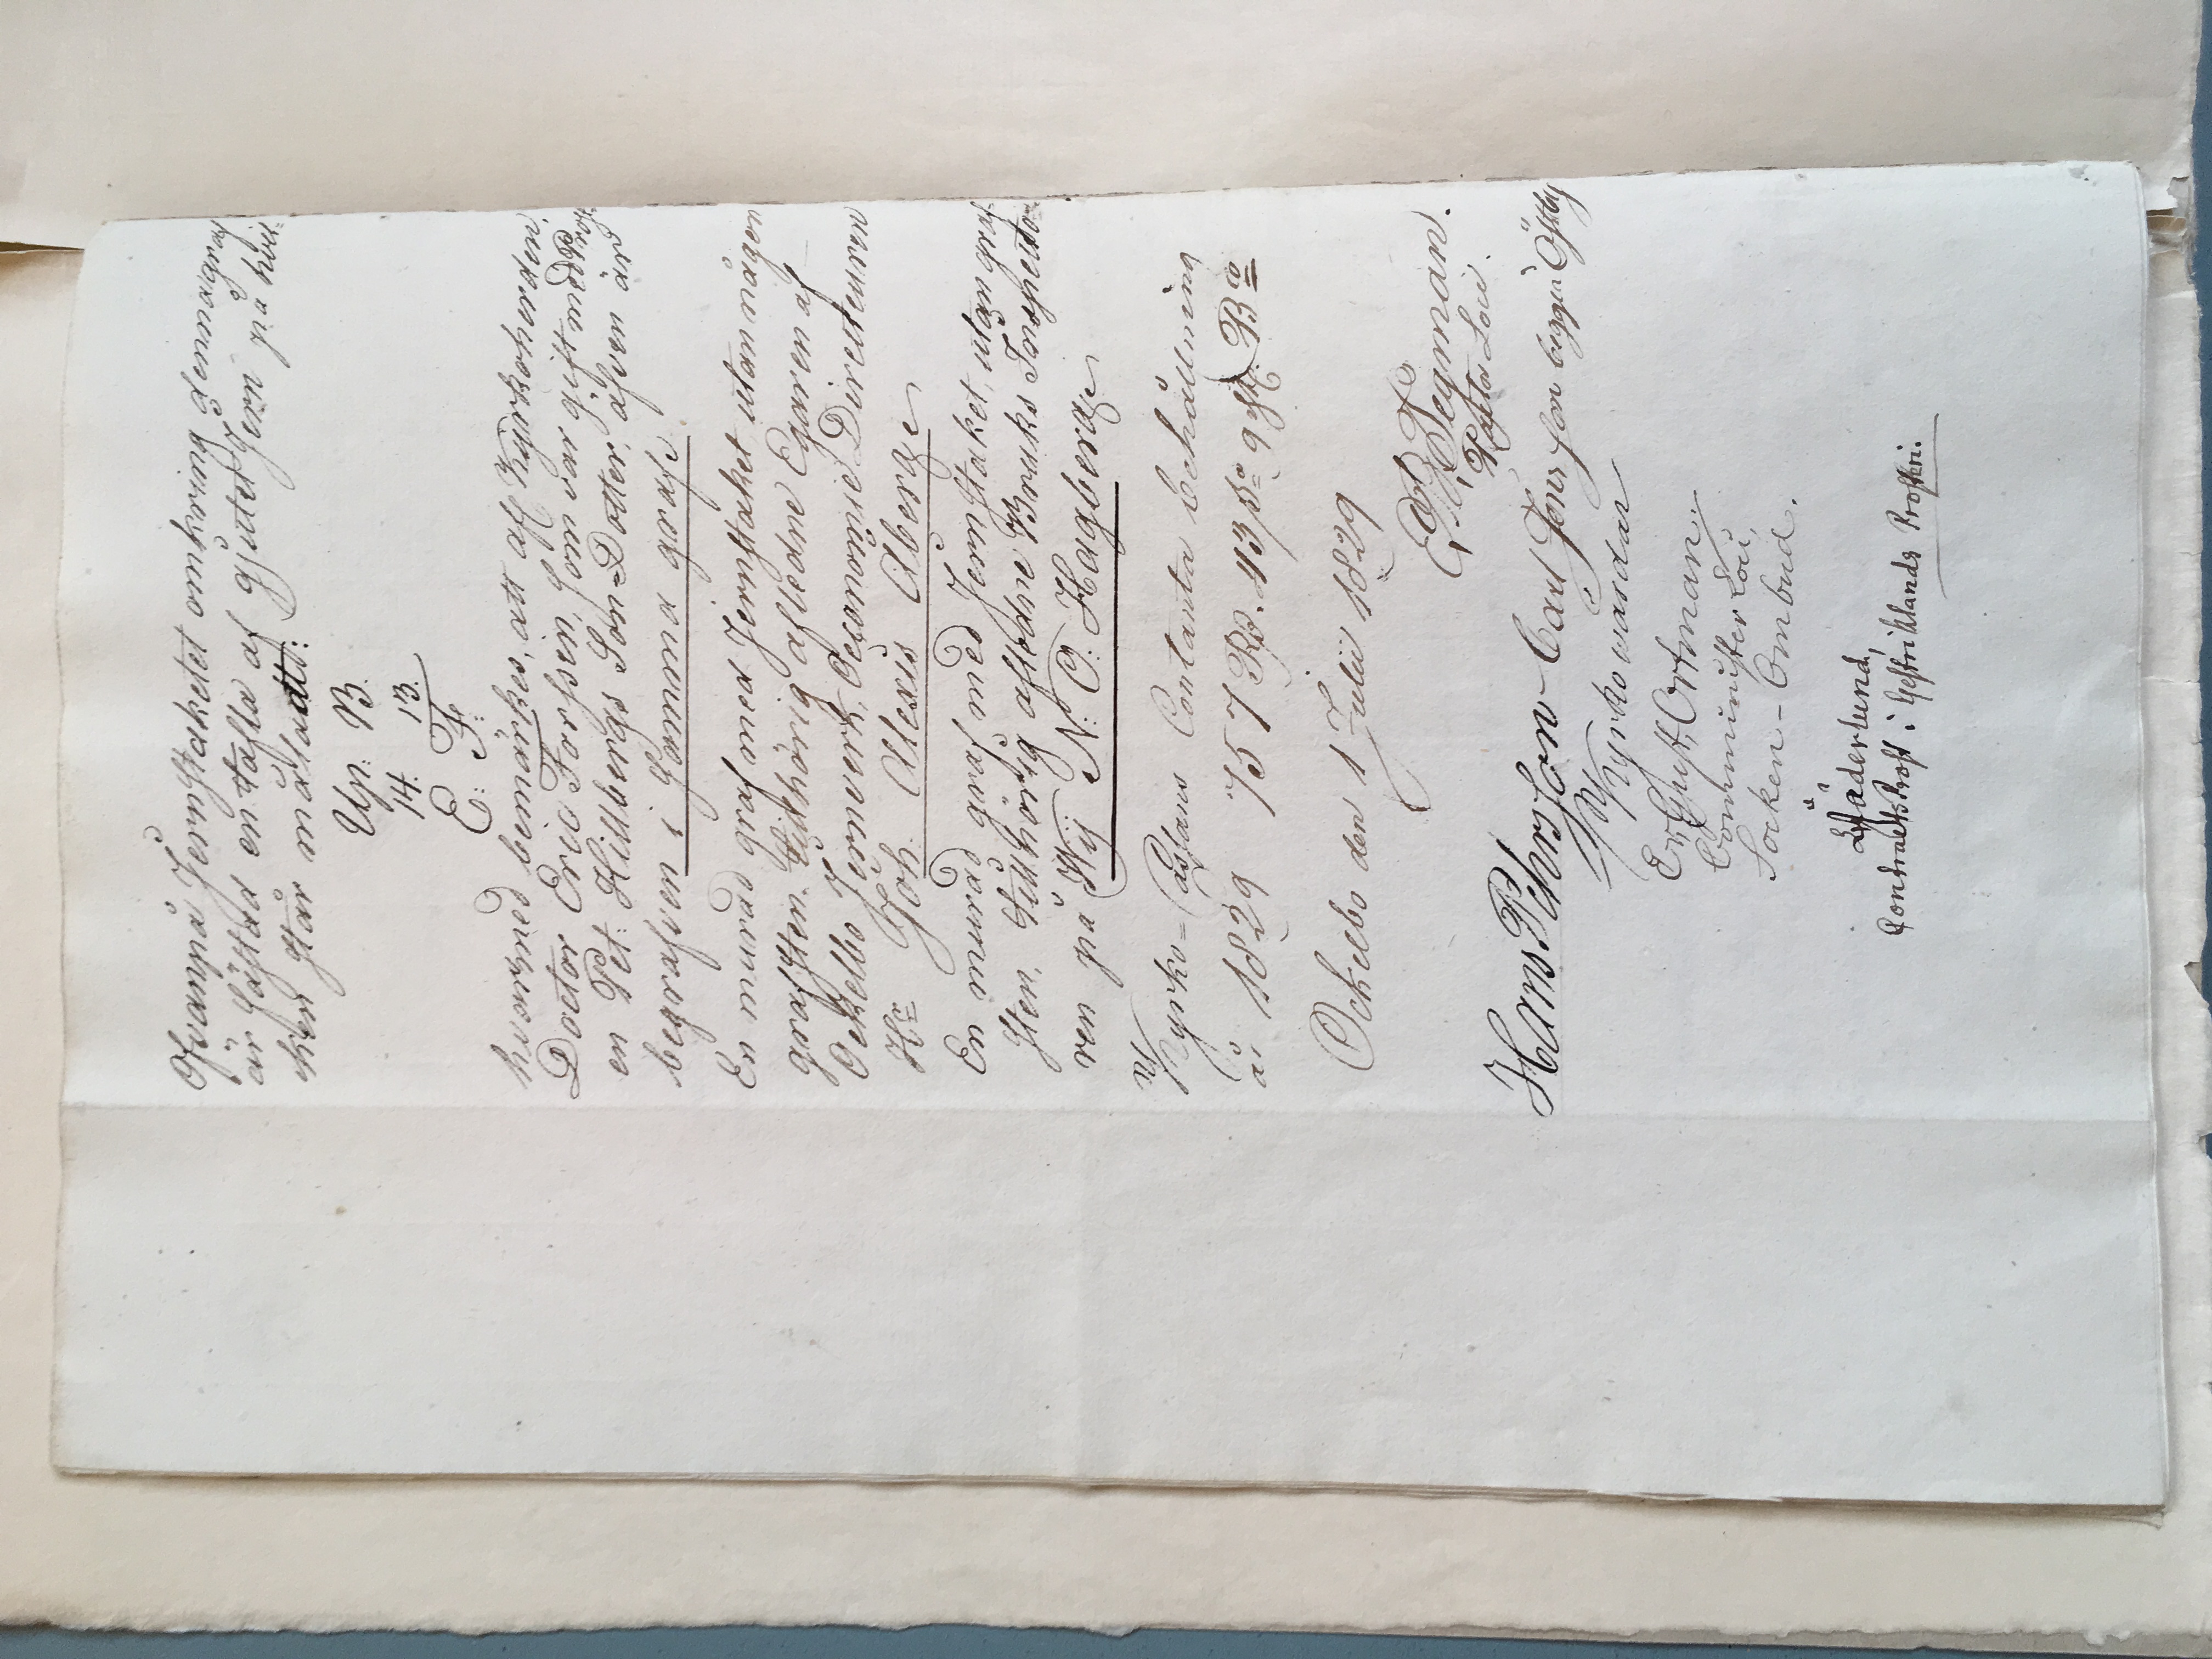 Ofvanpå Jernstaketet omkring denna graf
är fästad en tafla af gjutet Jern på hvil-
ken står måladt:
Up: B.
14. 13.
E: F:
hvarvid bör anmärkas, at af Kyrkoherden
Doctor Eric Forssin som var gift med Prost
en Pet: Hillbergs Son Dotter, äfven är
begrafven i samma graf.
En murad graf med Jernstaket utan någon
grafsten, tillhörig afledne Egaren af
Ockelbo Jernverk, Öfverste Directeuren
Hr Joh: Alexis Åberg.
En murad graf med Jernstaket, utan graf-
sten, tillhörig aflidne Bruks Inspecto-
ren på Wij N: O: Hagberg.
Kyrko-Cassans Contanta behållning
år 1829 757 Rd. 43 s. 9 rst. Bco
Ockelbo den 1 Julii 1829
P. Tegman.
Pastor Loci.
Hans Pehrsson Carl Jonsson bägge i Östby
Kyrkovärdar
Er: Gust. Ortman.
Comminister Loci,
Socken-Ombud.
Söderlund,
Contractsprost i Gestriklands Prosteri.